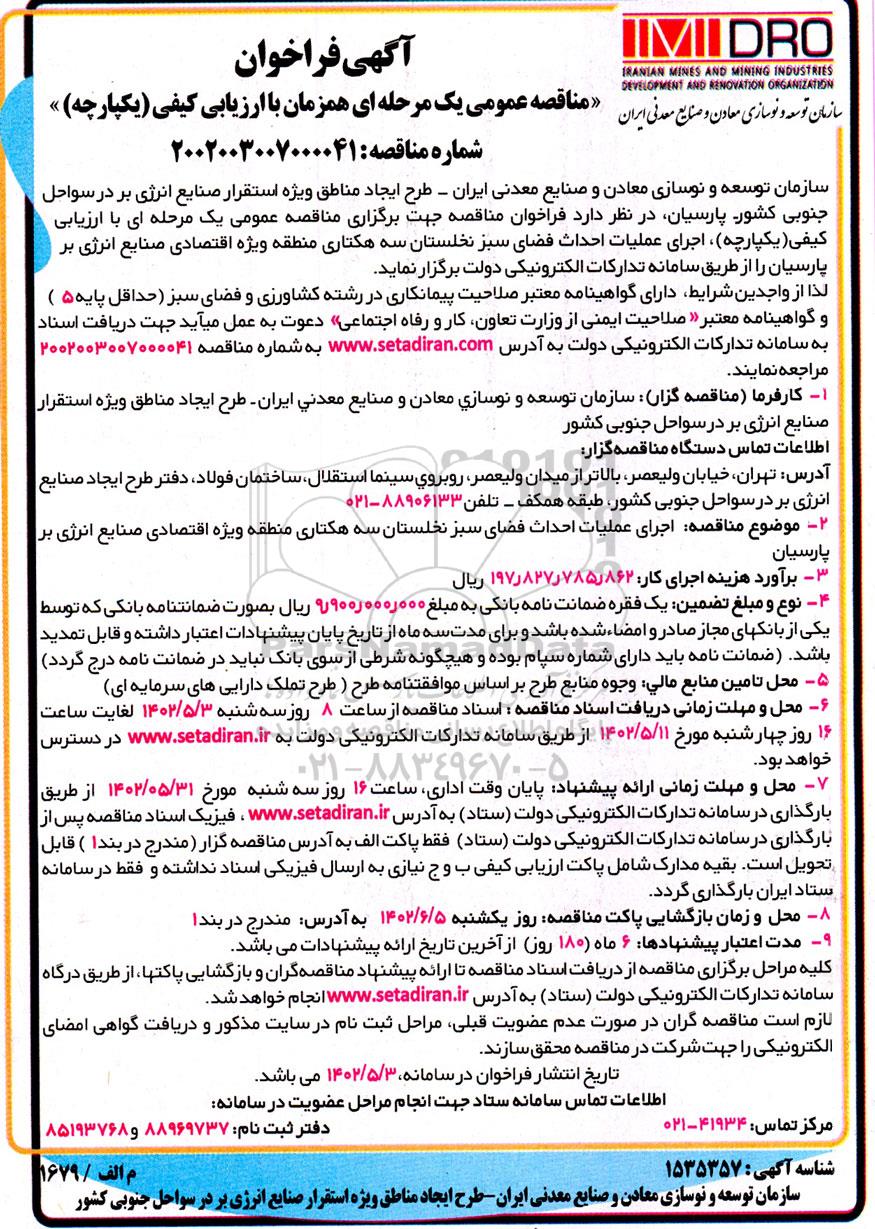 IMIDRO
IRANIAN MINES AND MINING INDUSTRIES
DEVELOPMENT AND RENOVATION ORGANIZATION
سازمان توسعه و نوسازی معادن و صنایع معدنی ایران
آگهی فراخوان
«مناقصه عمومی یک مرحله ای همزمان با ارزیابی کیفی (یکپارچه) »
شماره مناقصه: ۲۰۰۲۰۰۳۰۰۷۰۰۰۰۴۱
سازمان توسعه و نوسازی معادن و صنایع معدنی ایران – طرح ایجاد مناطق ویژه استقرار صنایع انرژی بر در سواحل
جنوبی کشور- پارسیان، در نظر دارد فراخوان مناقصه جهت برگزاری مناقصه عمومی یک مرحله ای با ارزیابی
کیفی(یکپارچه)، اجرای عملیات احداث فضای سبز نخلستان سه هکتاری منطقه ویژه اقتصادی صنایع انرژی بر
پارسیان را از طریق سامانه تدارکات الکترونیکی دولت برگزار نماید.
لذا از واجدین شرایط، دارای گواهینامه معتبر صلاحیت پیمانکاری در رشته کشاورزی و فضای سبز (حداقل پایه ۵ )
و گواهینامه معتبر« صلاحیت ایمنی از وزارت تعاون، کار و رفاه اجتماعی» دعوت به عمل میآید جهت دریافت اسناد
به سامانه تدارکات الکترونیکی دولت به آدرس www.setadiran.com به شماره مناقصه ۲۰۰۲۰۰۳۰۰۷۰۰۰۰۴۱
مراجعه نمایند.
۱- کارفرما (مناقصه گزار): سازمان توسعه و نوسازي معادن و صنایع معدني ایران- طرح ایجاد مناطق ویژه استقرار
صنایع انرژی بر در سواحل جنوبی کشور
اطلاعات تماس دستگاه مناقصه‌گزار:
آدرس: تهران، خیابان ولیعصر، بالاتر از میدان ولیعصر، روبروي سینما استقلال، ساختمان فولاد، دفتر طرح ایجاد صنایع
انرژی بر در سواحل جنوبی کشور، طبقه همکف – تلفن ۸۸۹۰۶۱۳۳-۰۲۱
۲- موضوع مناقصه: اجرای عملیات احداث فضای سبز نخلستان سه هکتاری منطقه ویژه اقتصادی صنایع انرژی بر
پارسیان
۳- برآورد هزینه اجرای کار: ۱۹۷٫۸۲۷٫۷۸۵٫۸۶۲ ریال
۴- نوع و مبلغ تضمین: یک فقره ضمانت نامه بانکی به مبلغ ۹٫۹۰۰٫۰۰۰٫۰۰۰ ریال بصورت ضمانتنامه بانکی که توسط
یکی از بانکهای مجاز صادر و امضاء شده باشد و برای مدت سه ماه از تاریخ پایان پیشنهادات اعتبار داشته و قابل تمدید
باشد. (ضمانت نامه باید دارای شماره سپام بوده و هیچگونه شرطی از سوی بانک نباید در ضمانت نامه درج گردد)
۵- محل تامین منابع مالي: وجوه منابع طرح بر اساس موافقتنامه طرح ( طرح تملک دارایی های سرمایه ای)
۶- محل و مهلت زمانی دریافت اسناد مناقصه : اسناد مناقصه از ساعت ۸ روز سه شنبه ۱۴۰۲/۵/۳ لغایت ساعت
۱۶ روز چهارشنبه مورخ ۱۴۰۲/۵/۱۱ از طریق سامانه تدارکات الکترونیکی دولت به www.setadiran.ir در دسترس
خواهد بود.
۷- محل و مهلت زمانی ارائه پیشنهاد: پایان وقت اداری، ساعت ۱۶ روز سه شنبه مورخ ۱۴۰۲/۰۵/۳۱ از طریق
بارگذاری در سامانه تدارکات الکترونیکی دولت (ستاد) به آدرس www.setadiran.ir ، فیزیک اسناد مناقصه پس از
بارگذاری در سامانه تدارکات الکترونیکی دولت (ستاد) فقط پاکت الف به آدرس مناقصه گزار (مندرج در بند۱ ) قابل
تحویل است. بقیه مدارک شامل پاکت ارزیابی کیفی ب و ج نیازی به ارسال فیزیکی اسناد نداشته و فقط در سامانه
ستاد ایران بارگذاری گردد.
۸- محل و زمان بازگشایی پاکت مناقصه: روز یکشنبه ۱۴۰۲/۶/۵ به آدرس: مندرج در بند۱
۹- مدت اعتبار پیشنهادها: ۶ ماه (۱۸۰ روز) از آخرین تاریخ ارائه پیشنهادات می باشد.
کلیه مراحل برگزاری مناقصه از دریافت اسناد مناقصه تا ارائه پیشنهاد مناقصه‌گران و بازگشایی پاکتها، از طریق درگاه
سامانه تدارکات الکترونیکی دولت (ستاد) به آدرس www.setadiran.ir انجام خواهد شد.
لازم است مناقصه گران در صورت عدم عضویت قبلی، مراحل ثبت نام در سایت مذکور و دریافت گواهی امضای
الکترونیکی را جهت شرکت در مناقصه محقق سازند.
تاریخ انتشار فراخوان در سامانه، ۱۴۰۲/۵/۳ می باشد.
اطلاعات تماس سامانه ستاد جهت انجام مراحل عضویت در سامانه:
مرکز تماس: ۴۱۹۳۴-۰۲۱
دفتر ثبت نام: ۸۸۹۶۹۷۳۷ و ۸۵۱۹۳۷۶۸
شناسه آگهی: ۱۵۳۵۳۵۷
م الف / ۱۶۷۹
سازمان توسعه و نوسازی معادن و صنایع معدنی ایران-طرح ایجاد مناطق ویژه استقرار صنایع انرژی بر در سواحل جنوبی کشور
ParsNamadData
پایگاه اطلاع رسانی مناقصه و مزایده
۰۲۱-۸۸۳۴۹۶۷۰-۵